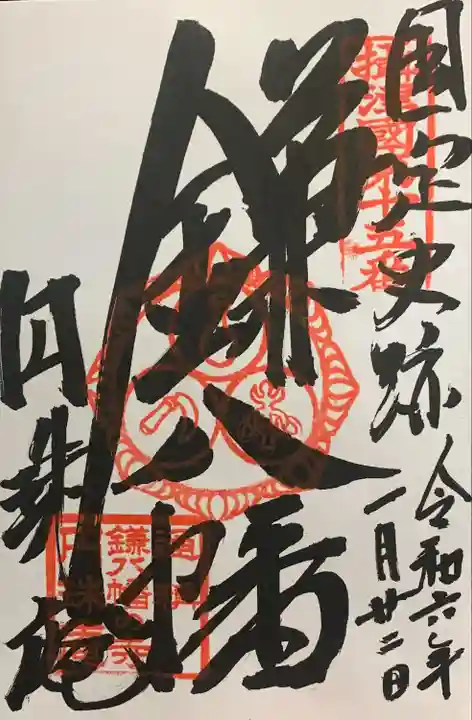 国定史跡
令和六年
一月廿二日
鎌八幡
円珠庵
鎌八幡の寺